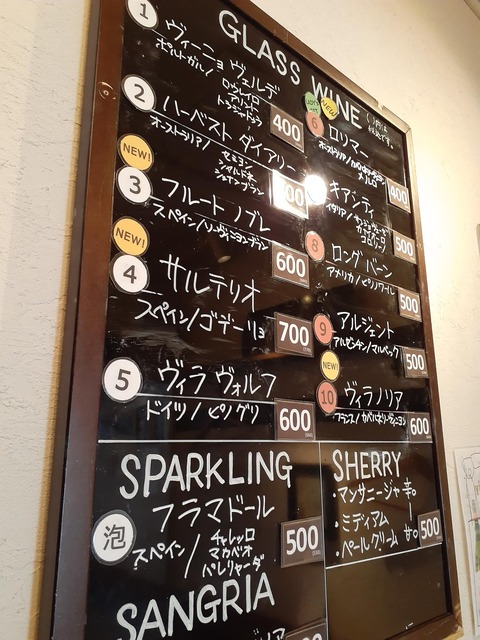 GLASS WINE
1
ヴィーニョ ヴェルデ
ポルトガル/
ロウレイロ
アリント
トラジャドゥラ
400
2
ハーベスト ダイアリー
オーストラリア/
セミヨン
シャルドネ
ソーヴィニヨンブラン
00
NEW!
3
フルート ノブレ
スペイン/ソーヴィニヨンブラン
600
NEW!
4
サルテリオ
スペイン/ゴデーリョ
700
5
ヴィラ ヴォルフ
ドイツ/ピノグリ
600
NEW
6
ロリマー
メルロ
400
キアンティ
イタリア/サンジョヴェーゼ
カナイオーロ
コロリーノ
500
8
ロング バーン
アメリカ/ピノノワール
500
9
アルジェント
アルゼンチン/マルベック
500
NEW!
10
ヴィラノリア
フランス/カベルネソーヴィニヨン
600
SPARKLING
泡
フラマドール
スペイン/
チャレッロ
マカベオ
パレリャーダ
500
SHERRY
・マンサニージャ 辛。
・ミディアム |
・ペールクリーム 甘。
500
SANGRIA